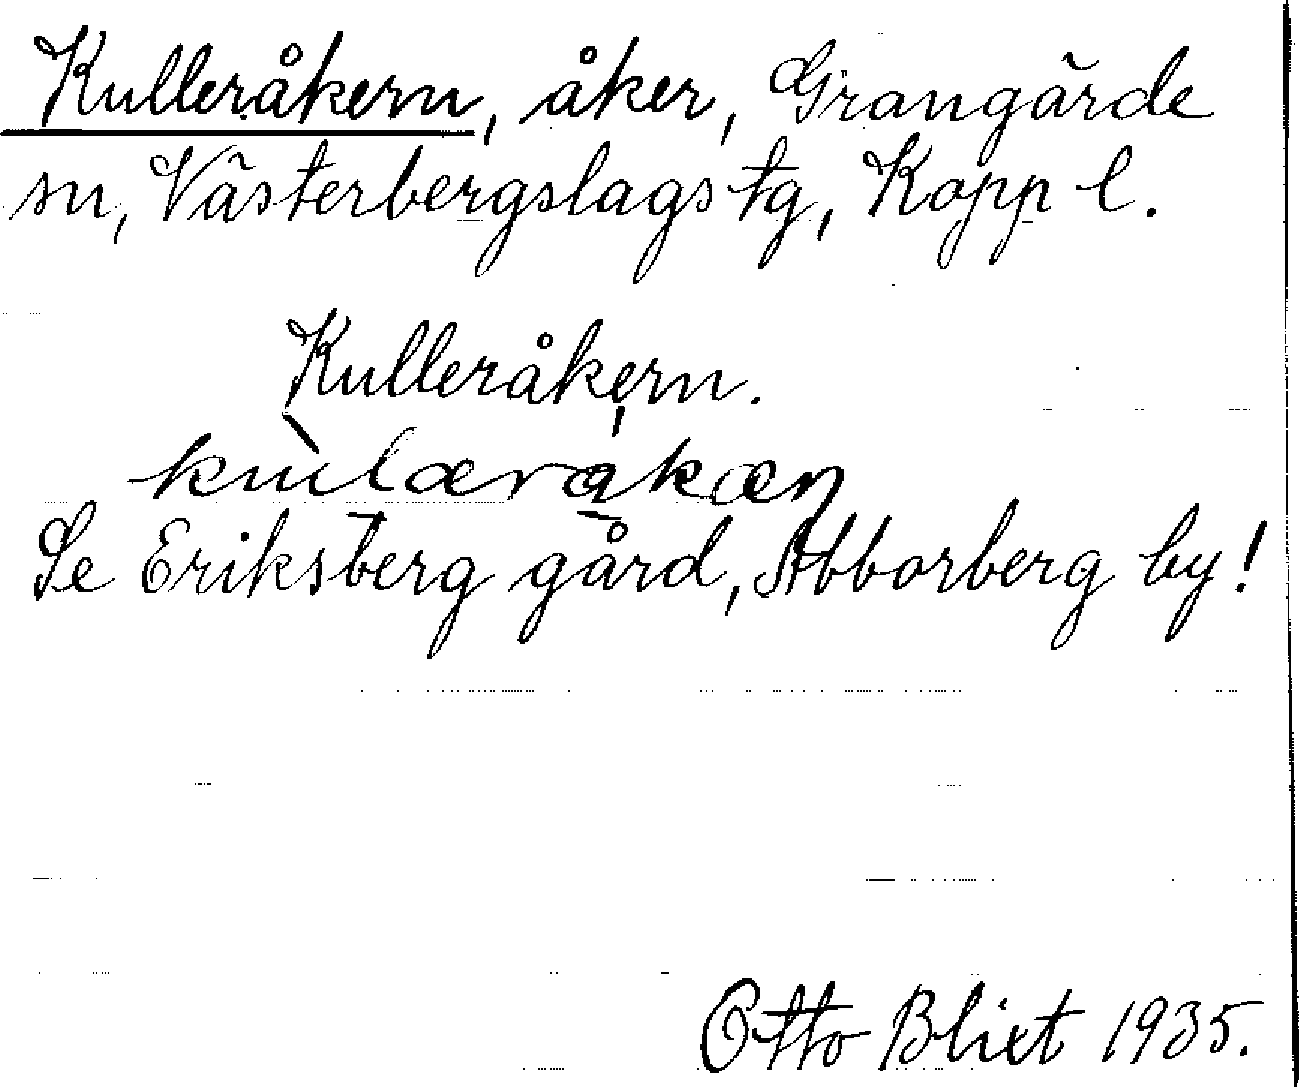 Kulleråkern, åker, Grangärde
sn, Västerbergslags tg, Kopp l.
Kulleråkern.
Se Eriksberg gård, Abborberg by!
Otto Blixt 1935.